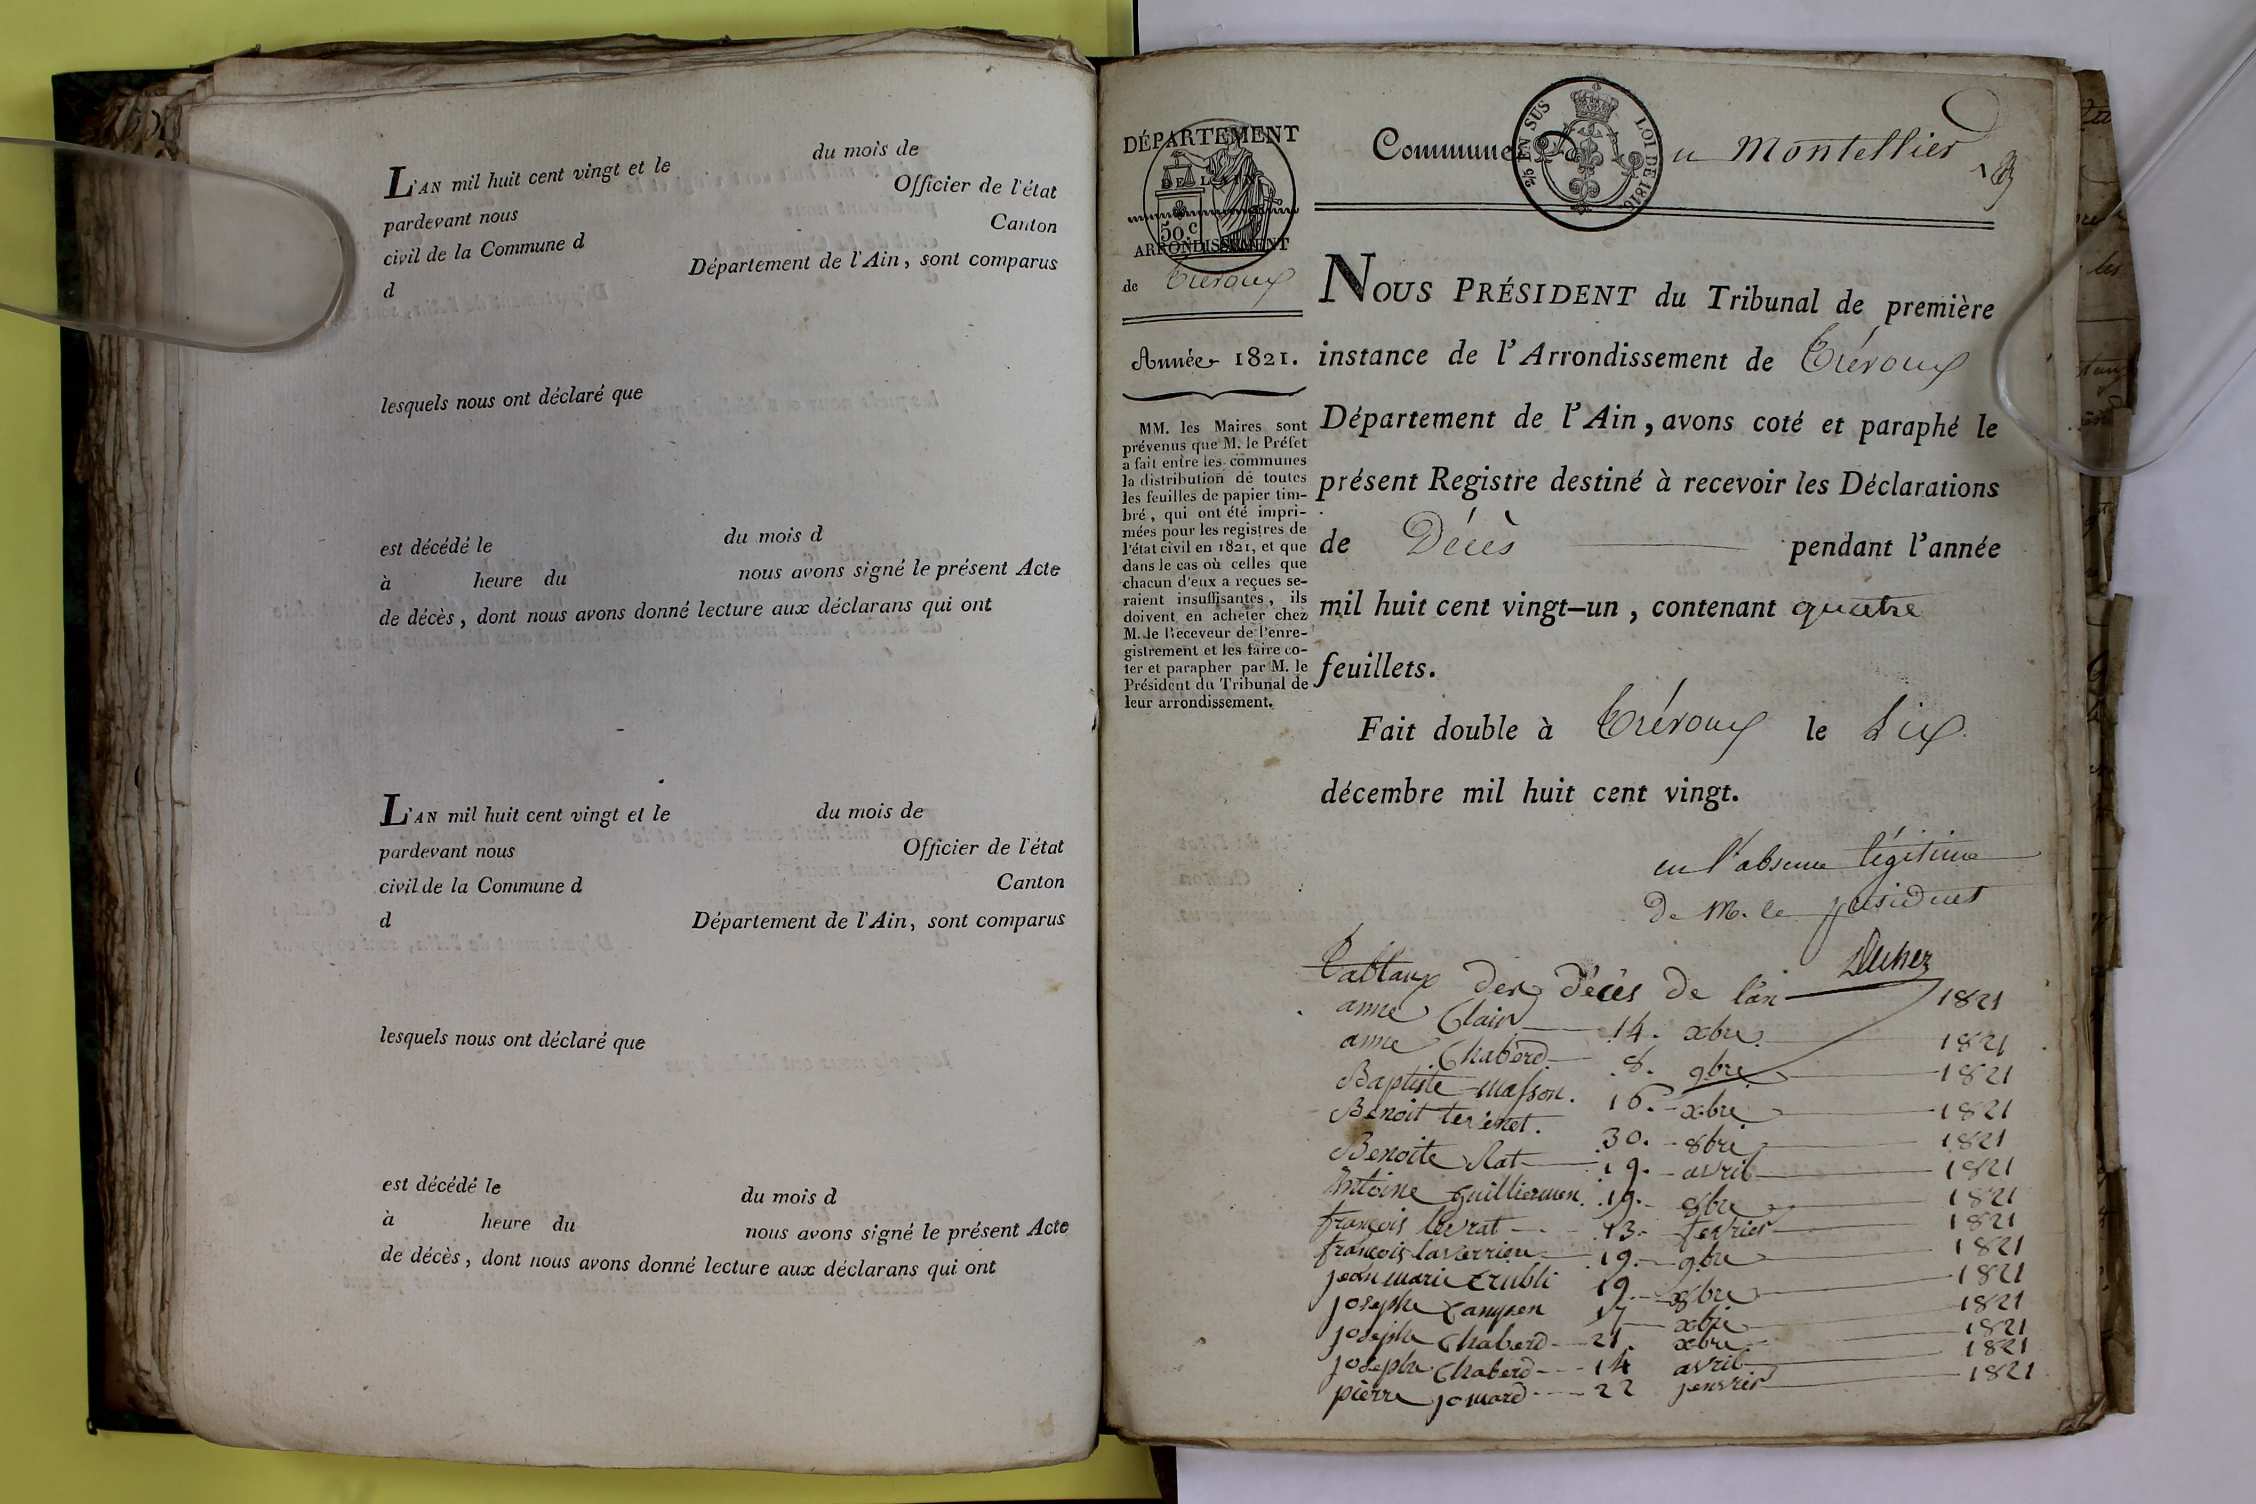 L'AN mil huit cent vingt et le du mois de
pardevant nous Officier de l'état
civil de la Commune d Canton
d Département de l'Ain, sont comparus
lesquels nous ont déclaré que
est décédé le du mois d
à heure du nous avons signé le présent Acte
de décès, dont nous avons donné lecture aux déclarans qui ont
L'AN mil huit cent vingt et le du mois de
pardevant nous Officier de l'état
civil de la Commune d Canton
d Département de l'Ain, sont comparus
lesquels nous ont déclaré que
est décédé le du mois d
à heure du nous avons signé le présent Acte
de décès, dont nous avons donné lecture aux déclarans qui ont
DÉPARTEMENT
DE L'AIN
50 c
ARRONDISSEMENT
de Trévoux
Année 1821.
MM. les Maires sont
prévenus que M. le Préfet
a fait entre les communes
la distribution de toutes
les feuilles de papier tim-
bré, qui ont été impri-
mées pour les registres de
l'état civil en 1821, et que
dans le cas où celles que
chacun d'eux a reçues se-
raient insuffisantes, ils
doivent en acheter chez
M. le Receveur de l'enre-
gistrement et les faire co-
ter et parapher par M. le
Président du Tribunal de
leur arrondissement.
Commune du Montellier
EN SUS LOI DE 1816
NOUS PRÉSIDENT du Tribunal de première
instance de l'Arrondissement de Trévoux
Département de l'Ain, avons coté et paraphé le
présent Registre destiné à recevoir les Déclarations
de Décès pendant l'année
mil huit cent vingt-un, contenant quatre
feuillets.
Fait double à Trévoux le Six
décembre mil huit cent vingt.
en l'absence légitime
de M. le président
Tablaux des décès de l'an 1821
anne Clair 14. xbre 1821
anne Chaberd 8. 9bre 1821
Baptiste masson. 16. xbre 1821
Benoit terenet. 30. 8bre 1821
Benoite Rat 19. avril 1821
Antoine guilliermen 19. 8bre 1821
françois levrat 13. fevrier 1821
françois laverriere 19. 9bre 1821
jean marie trubli 19. 8bre 1821
josephe 17 xbre 1821
josephe Chaberd 21. xbre 1821
josephe Chaberd 14 avril 1821
pierre jomard 22 jenvrier 1821